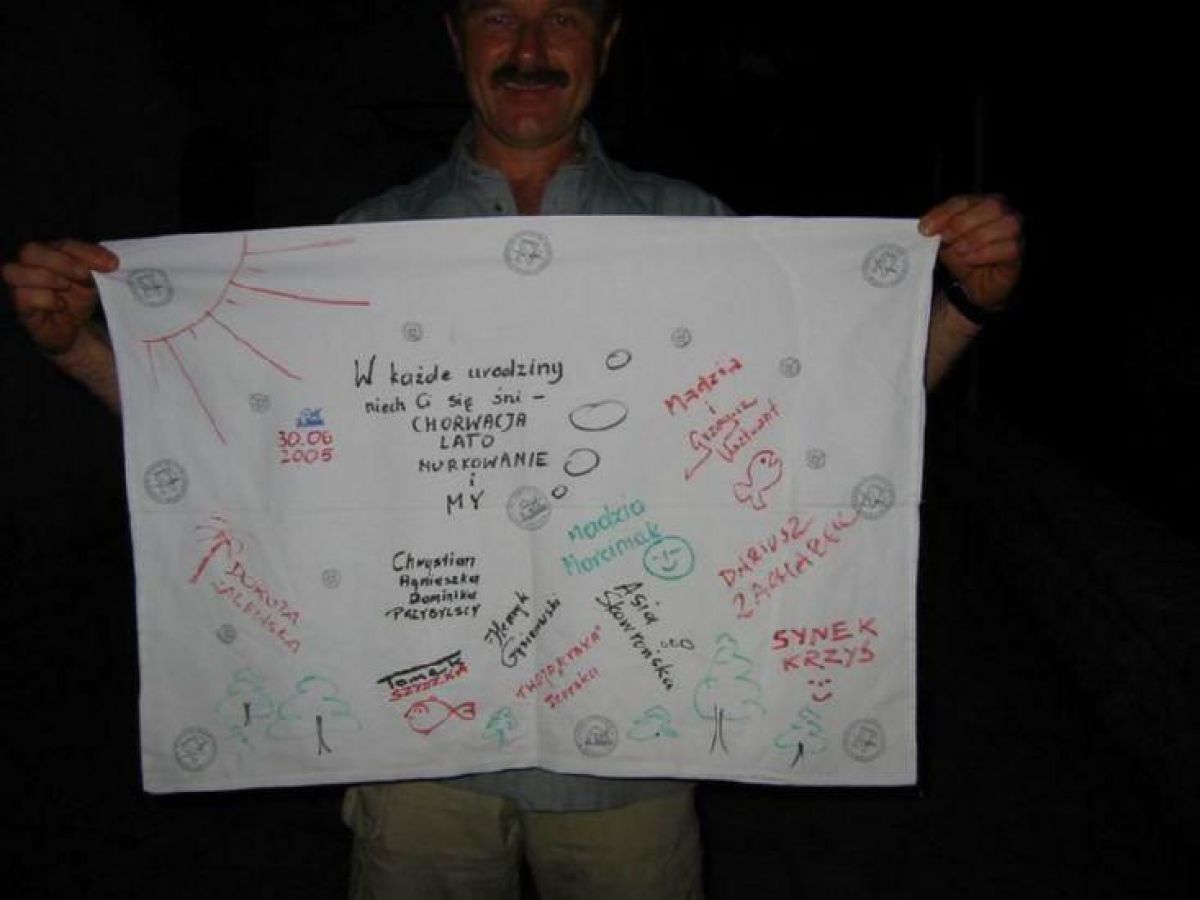 W każde urodziny
niech Ci się śni -
CHORWACJA
LATO
NURKOWANIE
i
MY
30.06
2005
Madzia
i
Grzegorz
Madzia
Marciniak
DARIUSZ
DOROTA
ZALEWSKA
Chrystian
Agnieszka
Dominika
PRZYBYLSCY
Henryk
Asia
Skowrońska
Tomek
SZYSZKA
SYNEK
KRZYŚ